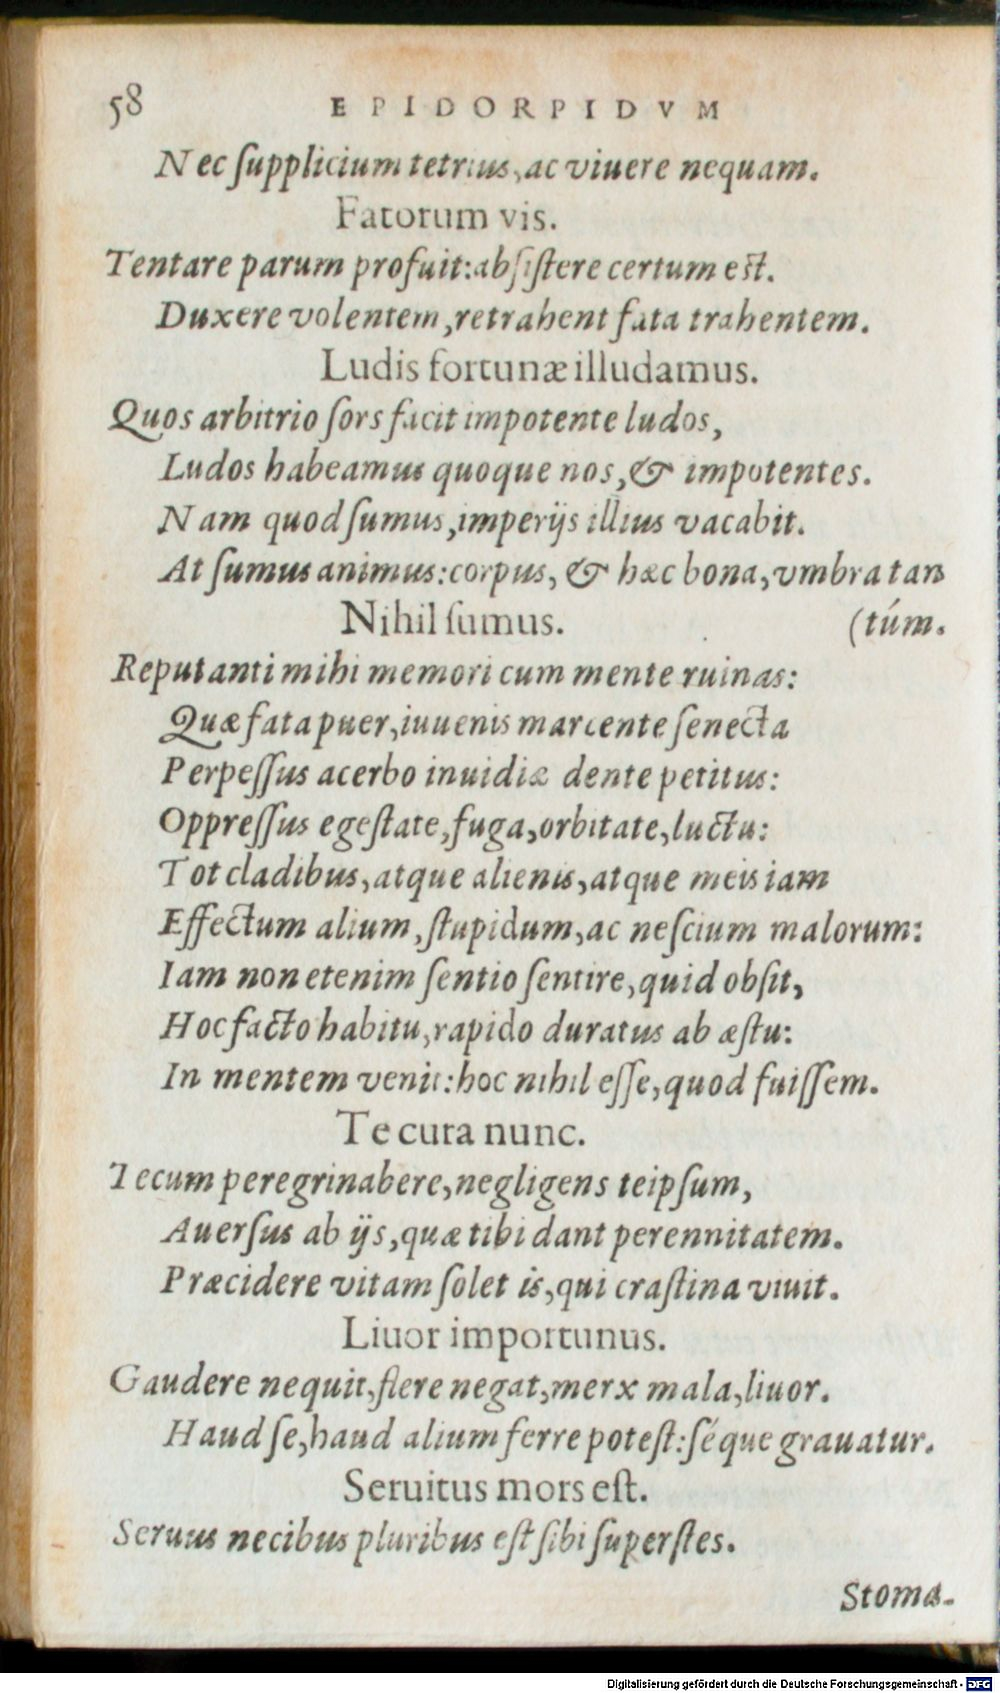 58 EPIDORPIDVM
Nec ſupplicium tetrius, ac viuere nequam.
Fatorum vis.
Tentare parum profuit: abſiſtere certum eſt.
Duxere volentem, retrahent fata trahentem.
Ludis fortunæ illudamus.
Quos arbitrio ſors facit impotente ludos,
Ludos habeamus quoque nos, & impotentes.
Nam quod ſumus, imperijs illius vacabit.
At ſumus animus: corpus, & hæc bona, vmbra tan
Nihil ſumus. (túm.
Reputanti mihi memori cum mente ruinas:
Quæ fata puer, iuuenis marcente ſenecta
Perpeſſus acerbo inuidiæ dente petitus:
Oppreſſus egeſtate, fuga, orbitate, luctu:
Tot cladibus, atque alienis, atque meis iam
Effectum alium, ſtupidum, ac neſcium malorum:
Iam non etenim ſentio ſentire, quid obſit,
Hoc facto habitu, rapido duratus ab æſtu:
In mentem venit: hoc nihil eſſe, quod fuiſſem.
Te cura nunc.
Tecum peregrinabere, negligens teipſum,
Auerſus ab ijs, quæ tibi dant perennitatem.
Præcidere vitam ſolet is, qui craſtina viuit.
Liuor importunus.
Gaudere nequit, flere negat, merx mala, liuor.
Haud ſe, haud alium ferre poteſt: ſéque grauatur.
Seruitus mors eſt.
Seruus necibus pluribus eſt ſibi ſuperſtes.
Stoma-
Digitalisierung gefördert durch die Deutsche Forschungsgemeinschaft - DFG